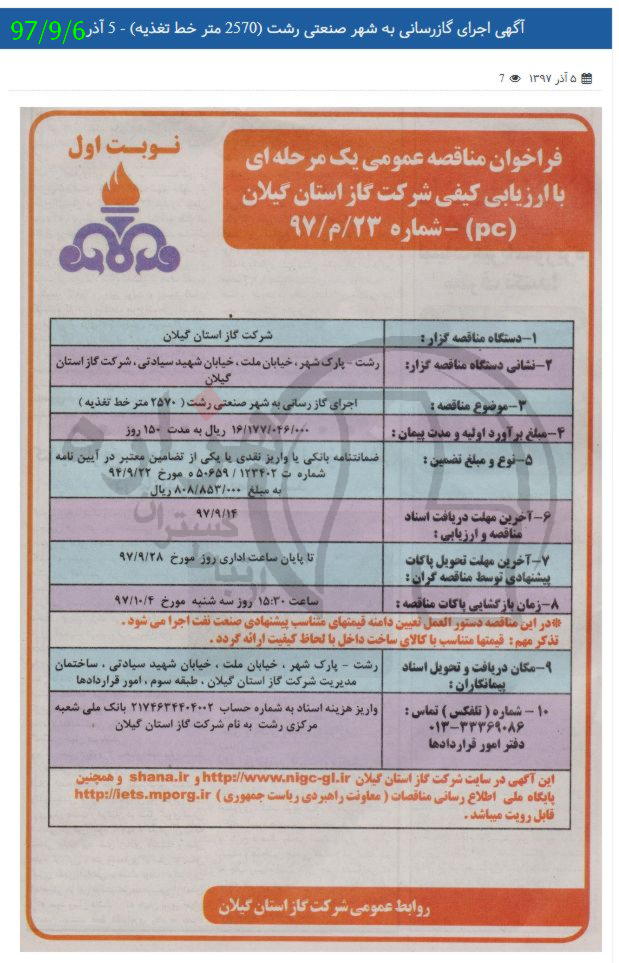 آگهی اجرای گازرسانی به شهر صنعتی رشت (2570 متر خط تغذیه) - 5 آذر 97/9/6
۵ آذر ۱۳۹۷ 7
نوبت اول
فراخوان مناقصه عمومی یک مرحله ای
با ارزیابی کیفی شرکت گاز استان گیلان
(pc) - شماره ۲۳/م/۹۷
۱-دستگاه مناقصه گزار : شرکت گاز استان گیلان
۲-نشانی دستگاه مناقصه گزار: رشت - پارک شهر ، خیابان ملت، خیابان شهید سیادتی ، شرکت گاز استان
گیلان
۳-موضوع مناقصه : اجرای گاز رسانی به شهر صنعتی رشت ( ۲۵۷۰ متر خط تغذیه )
۴-مبلغ برآورد اولیه و مدت پیمان : ۱۶/۱۷۷/۰۴۶/۰۰۰ ریال به مدت ۱۵۰ روز
۵-نوع و مبلغ تضمین : ضمانتنامه بانکی یا واریز نقدی یا یکی از تضامین معتبر در آیین نامه
شماره ت ۱۲۳۴۰۲ / ۵۰۶۵۹ ه مورخ ۹۴/۹/۲۲
به مبلغ ۸۰۸/۸۵۳/۰۰۰ ریال
۶-آخرین مهلت دریافت اسناد ۹۷/۹/۱۴
مناقصه و ارزیابی :
۷-آخرین مهلت تحویل پاکات تا پایان ساعت اداری روز مورخ ۹۷/۹/۲۸
پیشنهادی توسط مناقصه گران :
۸-زمان بازگشایی پاکات مناقصه : ساعت ۱۵:۳۰ روز سه شنبه مورخ ۹۷/۱۰/۴
*در این مناقصه دستور العمل تعیین دامنه قیمتهای متناسب پیشنهادی صنعت نفت اجرا می شود .
تذکر مهم : قیمتها متناسب با کالای ساخت داخل با لحاظ کیفیت ارائه گردد .
۹-مکان دریافت و تحویل اسناد رشت - پارک شهر ، خیابان ملت ، خیابان شهید سیادتی ، ساختمان
پیمانکاران : مدیریت شرکت گاز استان گیلان ، طبقه سوم ، امور قراردادها
۱۰- شماره ( تلفکس ) تماس : واریز هزینه اسناد به شماره حساب ۲۱۷۴۶۳۴۴۰۴۰۰۲ بانک ملی شعبه
۰۱۳-۳۳۳۶۹۰۸۶ مرکزی رشت به نام شرکت گاز استان گیلان
دفتر امور قراردادها
این آگهی در سایت شرکت گاز استان گیلان http://www.nigc-gl.ir و shana.ir و همچنین
پایگاه ملی اطلاع رسانی مناقصات ( معاونت راهبردی ریاست جمهوری ) http://iets.mporg.ir
قابل رویت میباشد .
روابط عمومی شرکت گاز استان گیلان